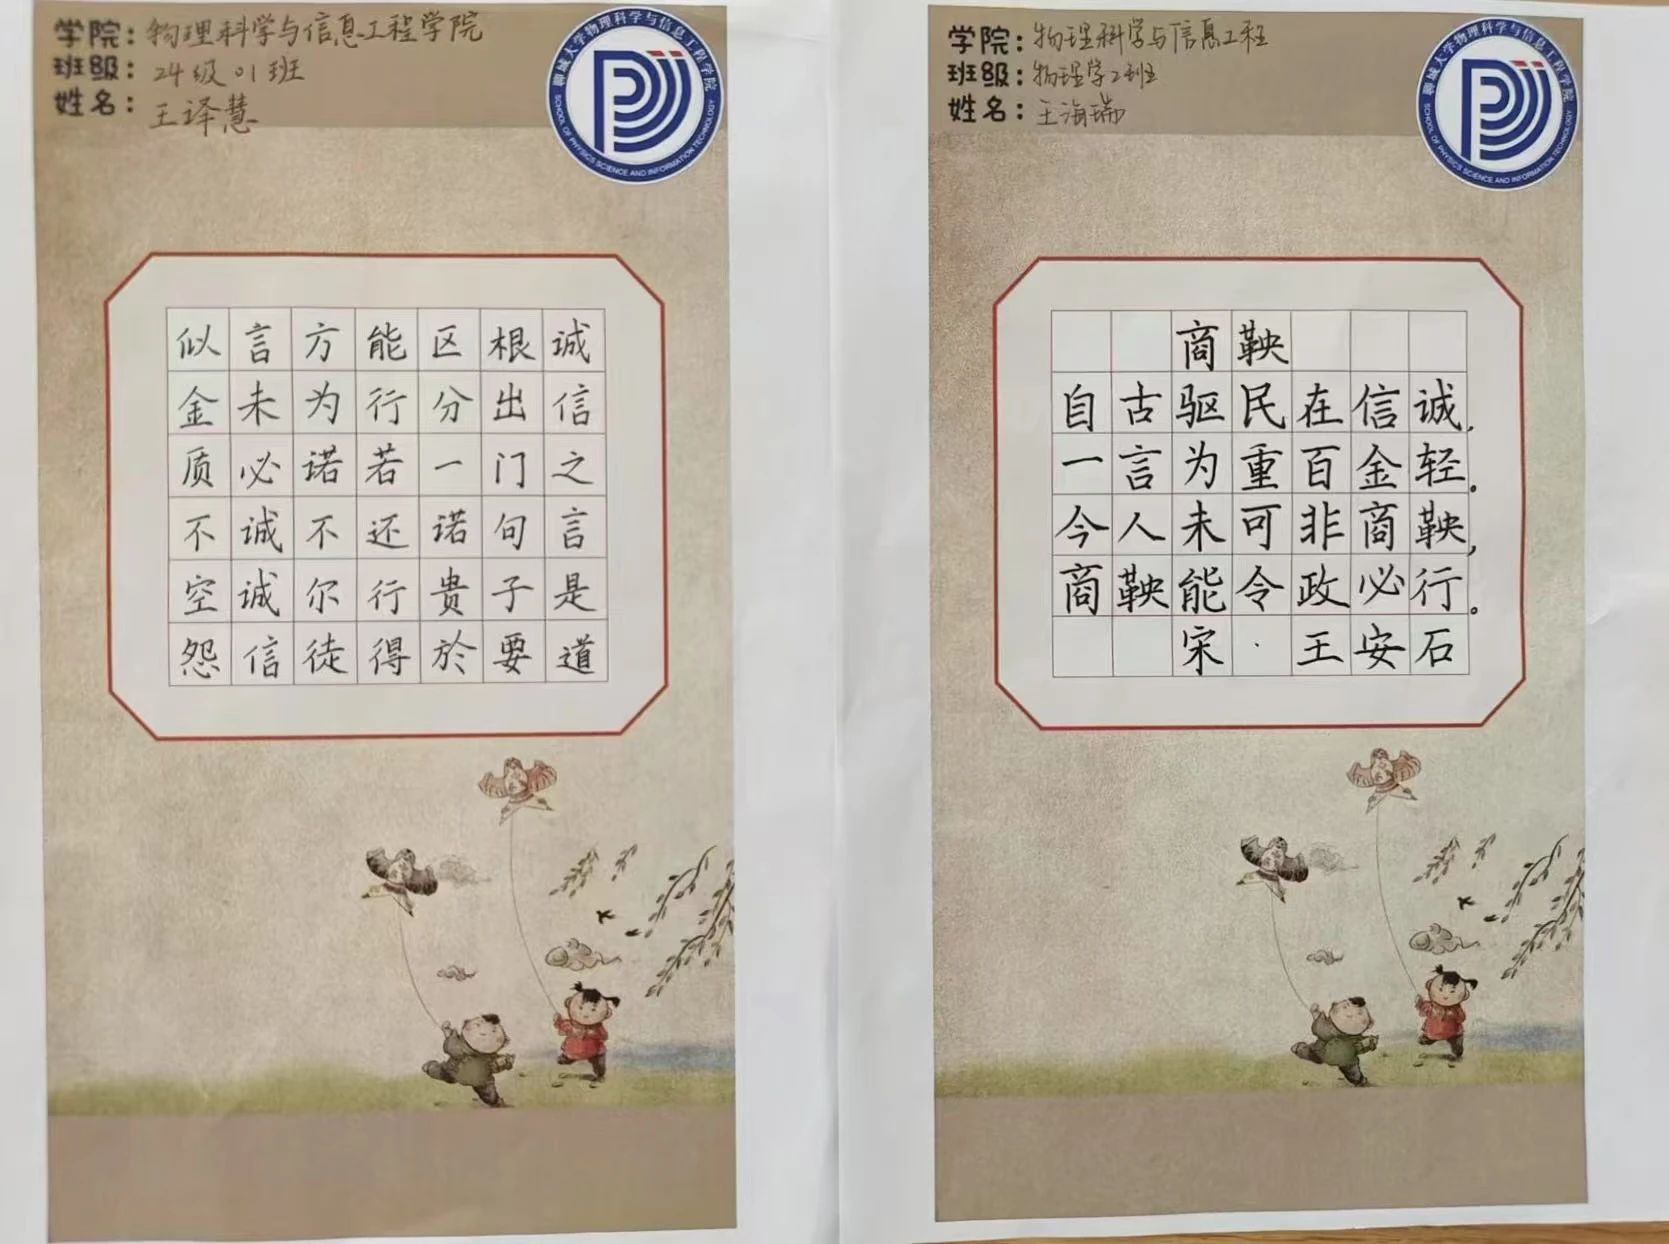 学院：物理科学与信息工程学院
班级：24级01班
姓名：王译慧
聊城大学物理科学与信息工程学院
SCHOOL OF PHYSICS SCIENCE AND INFORMATION TECHNOLOGY
诚信之言是道
根出门句子要
区分一诺贵於
能行若还行得
方为诺不尔徒
言未必诚诚信
似金质不空怨
学院：物理科学与信息工程
班级：物理学2班
姓名：王海瑞
聊城大学物理科学与信息工程学院
SCHOOL OF PHYSICS SCIENCE AND INFORMATION TECHNOLOGY
商鞅
自古驱民在信诚，
一言为重百金轻。
今人未可非商鞅，
商鞅能令政必行。
宋·王安石